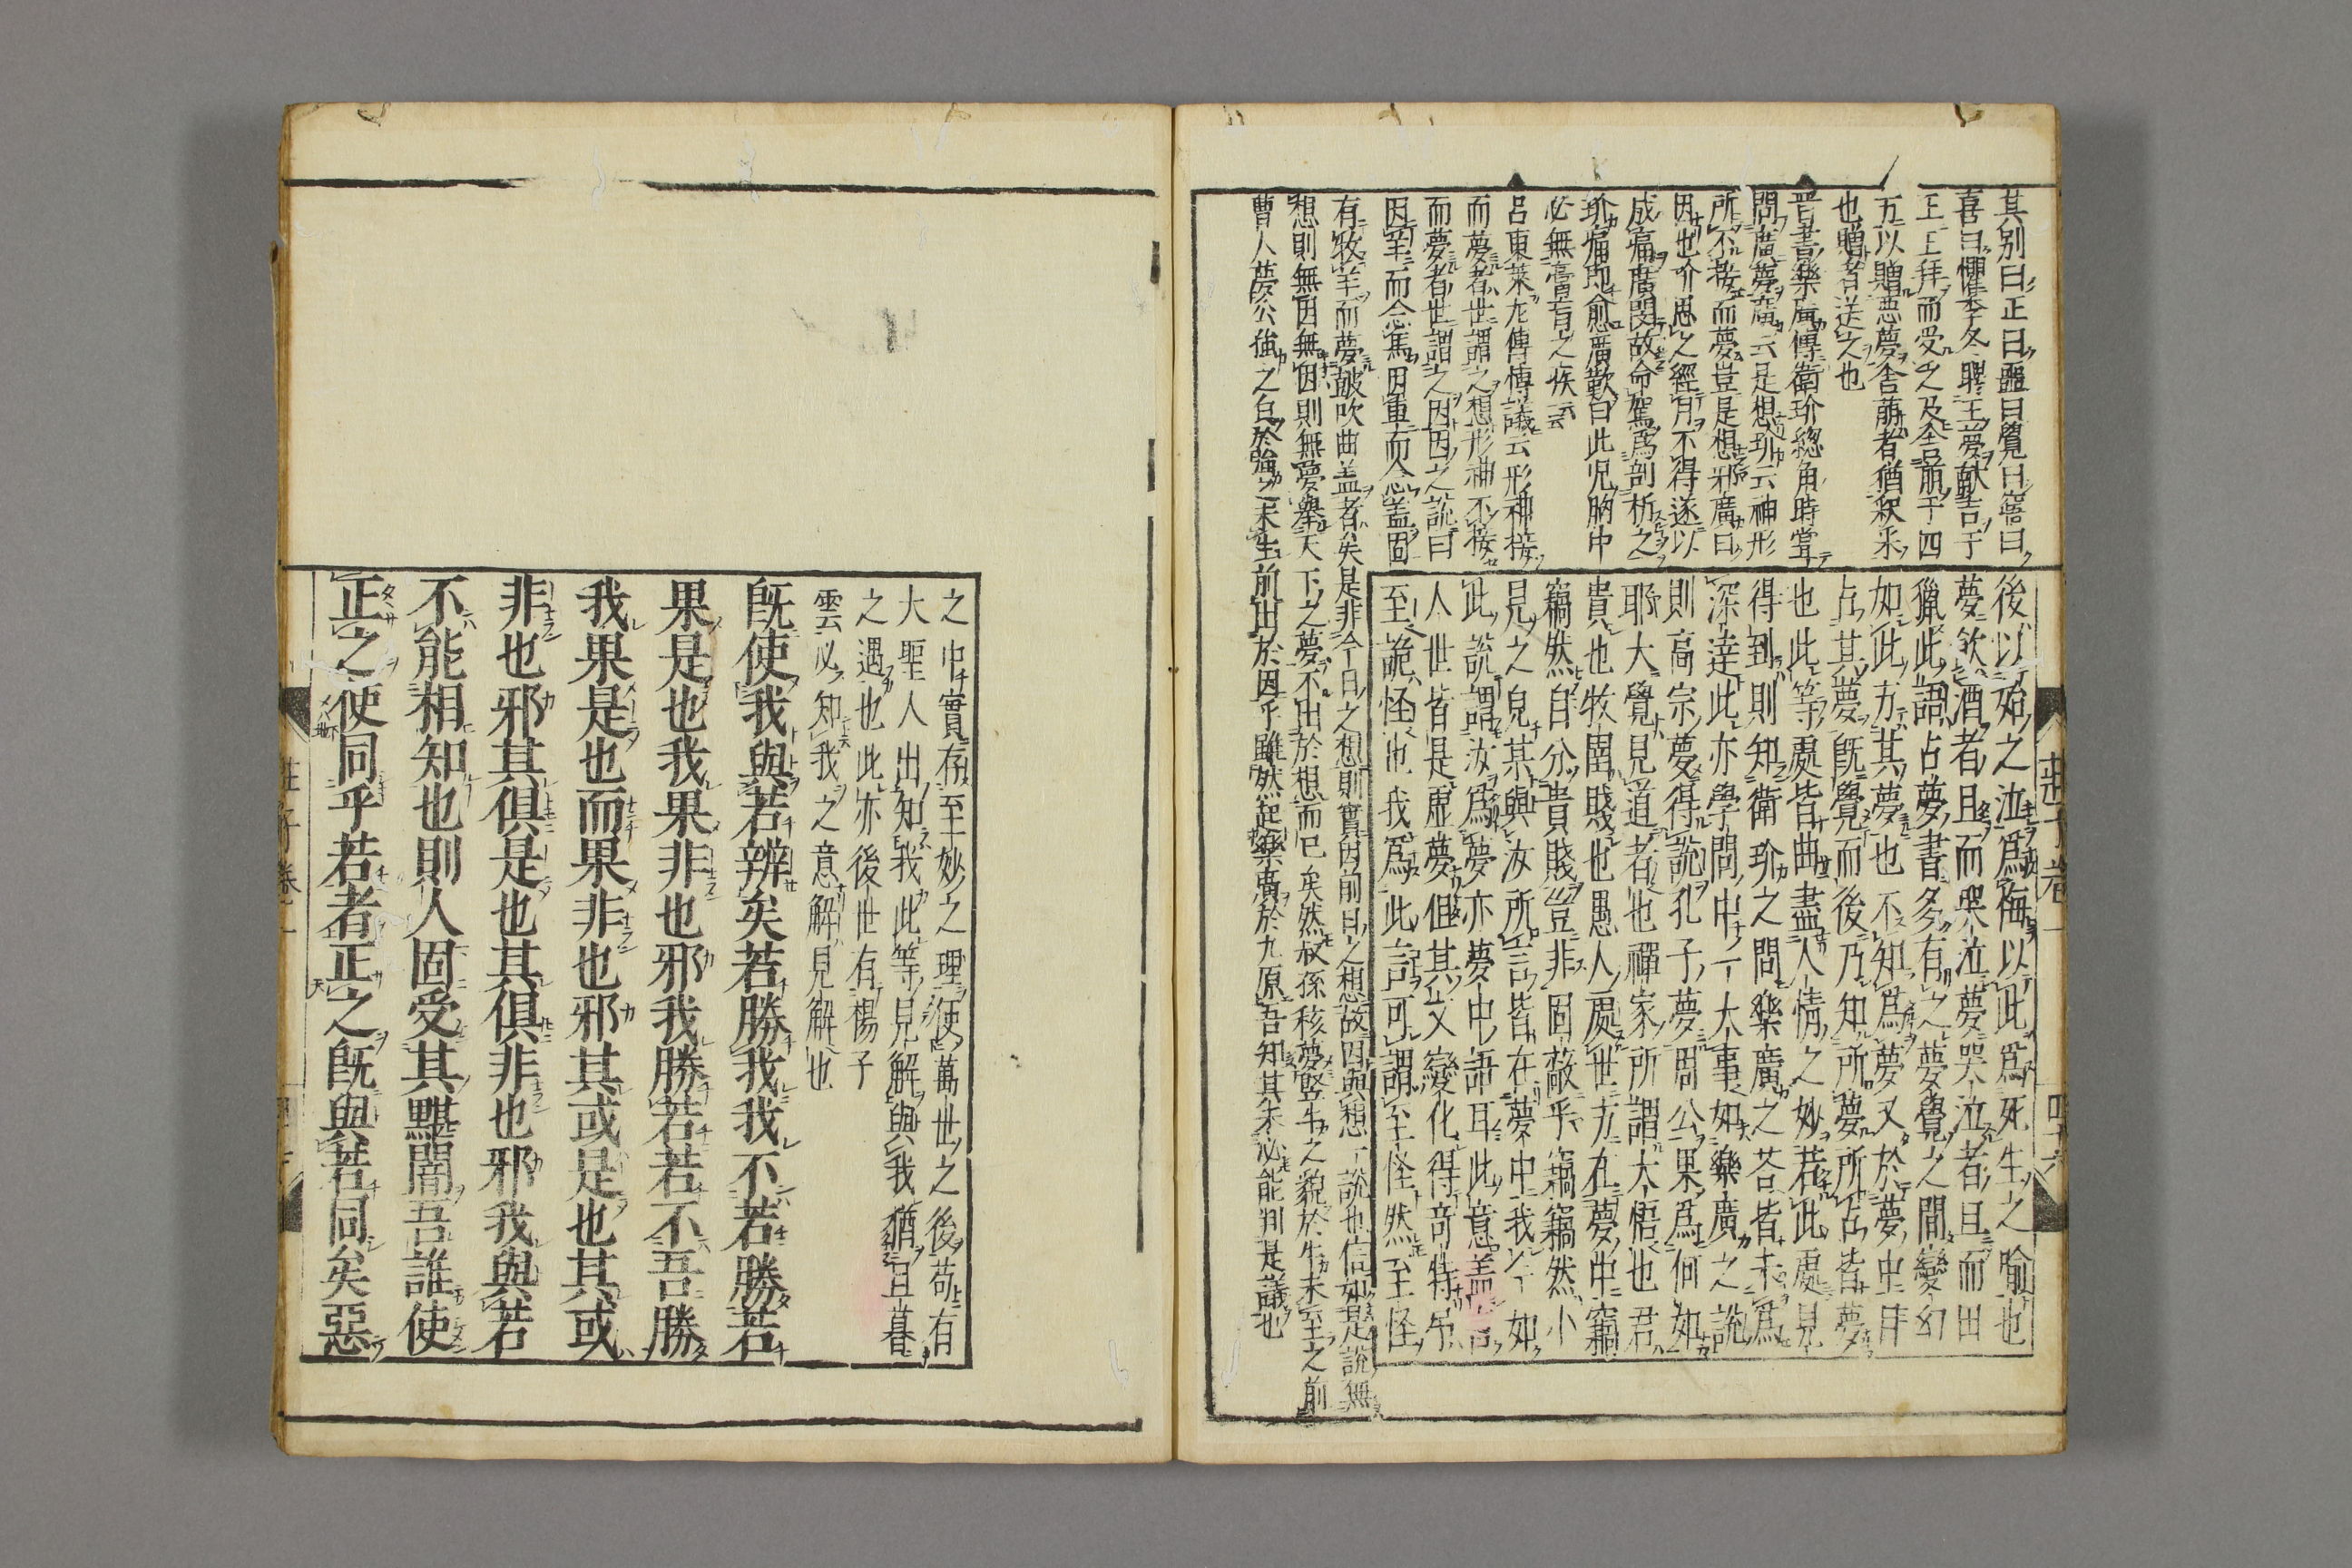 其別曰正曰噩曰覺曰寤曰
喜曰懼季冬聘王夢献吉于
王王拜而受之及舍萠于四
五以贈惡夢舍萠者猶釈釆
也贈者送之也
晋書樂廣傳衛玠總角時嘗
問廣夢廣云是想玠云神形
所不接而夢豈是想邪廣曰
因也玠思之經月不得遂以
成痛廣聞故命駕為剖析之
玠痛即愈廣歎曰此児胸中
必無膏肓之疾云云
呂東萊左傳博議云形神接
而夢者世謂之想形神不接
而夢者世謂之因因之說曰
因羊而念馬因車而念盖固
有牧羊而夢皷吹曲盖者矣是非今日之想則實因前日之想故因與想一說也信如是說無
想則無因無因則無夢舉天下之夢不出於想而已矣然叔孫穆夢竪牛之貌於牛未至之前
曹人夢公強之名於強之未生前出於因乎雖然起樂廣於九原吾知其未必能判是議也
後以始之泣爲悔以此爲死生之喻也
夢飲酒者且而哭泣夢哭泣者且而田
獵此語占夢書多有之夢覺之間變幻
如此方其夢也不知爲夢又於夢中自
占其夢旣覺而後乃知所夢所占皆夢
也此等處皆曲盡人情之妙若此處見
得到則知衛玠之問樂廣之荅皆未爲
深達此亦學問中一大事如樂廣之說
則高宗夢得說孔子夢周公果爲何如
耶大覺見道者也禪家所謂大悟也君
貴也牧圉賤也愚人處世方在夢中竊
竊然自分貴賤豈非固蔽乎竊竊然小
見之皃某與汝所言皆在夢中我今如
此說謂汝爲夢亦夢中語耳此意盖言
人世皆是虛夢但其文變化得奇特吊
至詭怪也我爲此言可謂至怪然至怪
莊子卷一
之中實存至妙之理使萬世之後苟有
大聖人出知我此等見解與我猶且暮
之遇也此亦後世有楊子
雲必知我之意解見解也
旣使我與若辨矣若勝我我不若勝若
果是也我果非也邪我勝若若不吾勝
我果是也而果非也邪其或是也其或
非也邪其俱是也其俱非也邪我與若
不能相知也則人固受其黮闇吾誰使
正之使同乎若者正之旣與若同矣惡